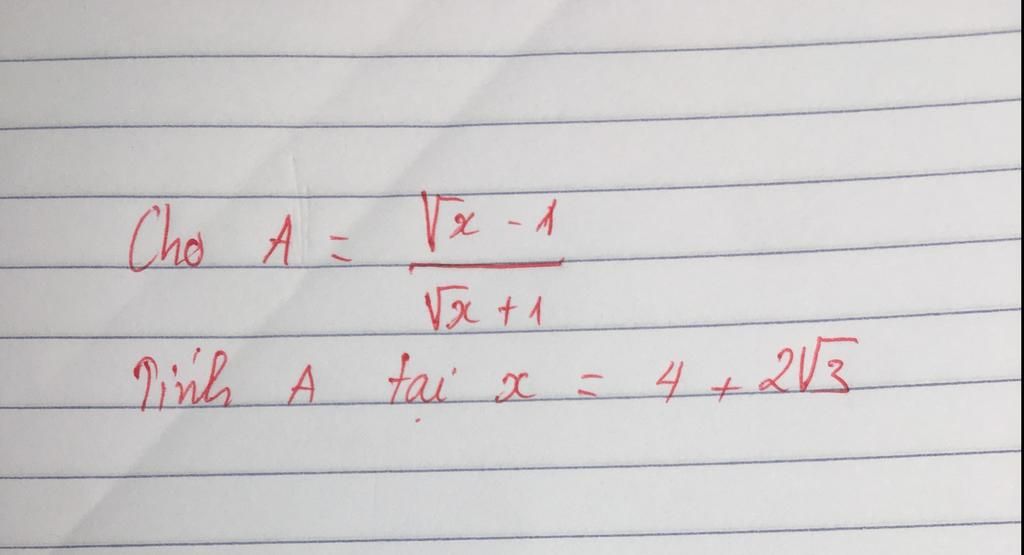 Cho A = \frac{\sqrt{x} - 1}{\sqrt{x} + 1}
Tính A tại x = 4 + 2\sqrt{3}